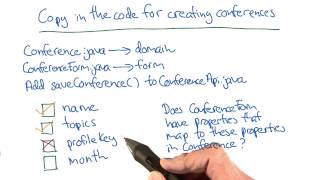 Copy in the code for creating conferences
Conference.java → domain
ConferenceForm.java → form
Add saveConference() to ConferenceApi.java
name
topics
profileKey
month
Does ConferenceForm
have properties that
map to these properties
in Conference?